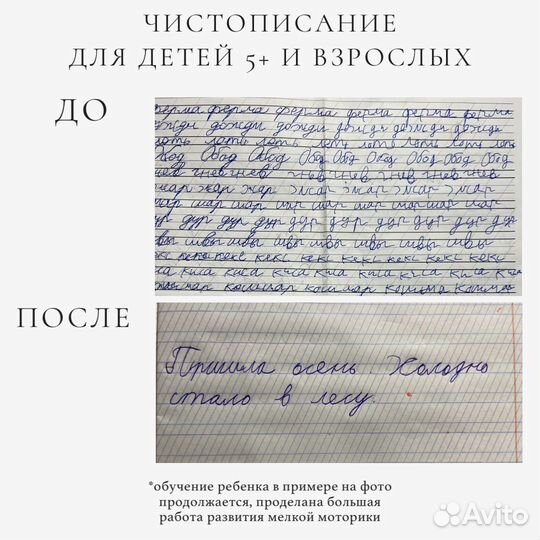 ЧИСТОПИСАНИЕ
ДЛЯ ДЕТЕЙ 5+ И ВЗРОСЛЫХ
ДО
ферма ферма ферма ферма ферма ферма
дожди дожди дожди дожди дожди дожди
лоть лоть лоть лоть лоть лоть лоть
Обод Обод Обод Обод Обод Обод Обод Обод
гнев гнев гнев гнев гнев гнев гнев
жар жар жар жар жар жар жар
шар шар шар шар шар шар шар
дур дур дур дур дур дур дур дур
швы швы швы швы швы швы швы
кекс кекс кекс кекс кекс кекс кекс
киса киса киса киса киса киса киса
кошмар кошмар кошмар
ПОСЛЕ
Пришла осень. Холодно
стало в лесу.
*обучение ребенка в примере на фото
продолжается, проделана большая
работа развития мелкой моторики
Avito